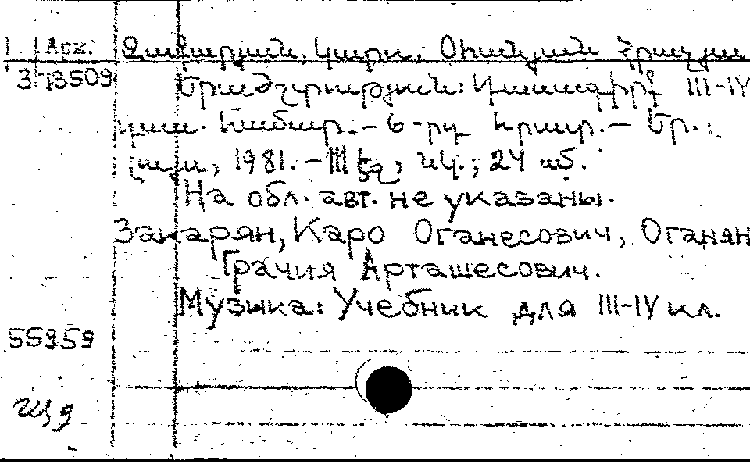 1 Арм. Զաքարյան, Կարո, Օհանյան Հրաչյա
3 13509 Երաժշտություն: Դասագիրք III-IV
դաս. համար.— 6-րդ հրատ.— Եր.:
Լույս, 1981.—III с., նկ.; 24 սմ.
На обл. авт. не указаны.
Закарян, Каро Оганесович, Оганян
Грачия Арташесович.
Музыка: Учебник для III-IV кл.
55959